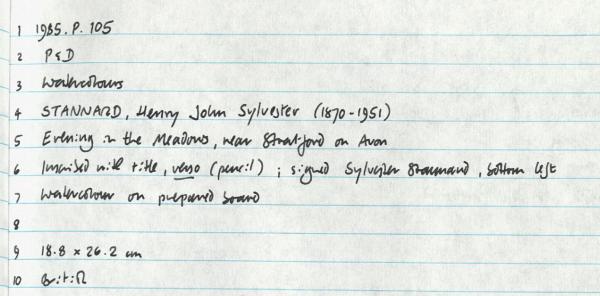 1 1985.P.105
2 P&D
3 Watercolours
4 STANNARD, Henry John Sylvester (1870-1951)
5 Evening in the Meadows, near Stratford on Avon
6 Inscribed with title, verso (pencil) ; signed Sylvester Stannard, bottom left
7 Watercolour on prepared board
8
9 18.8 x 26.2 cm
10 British